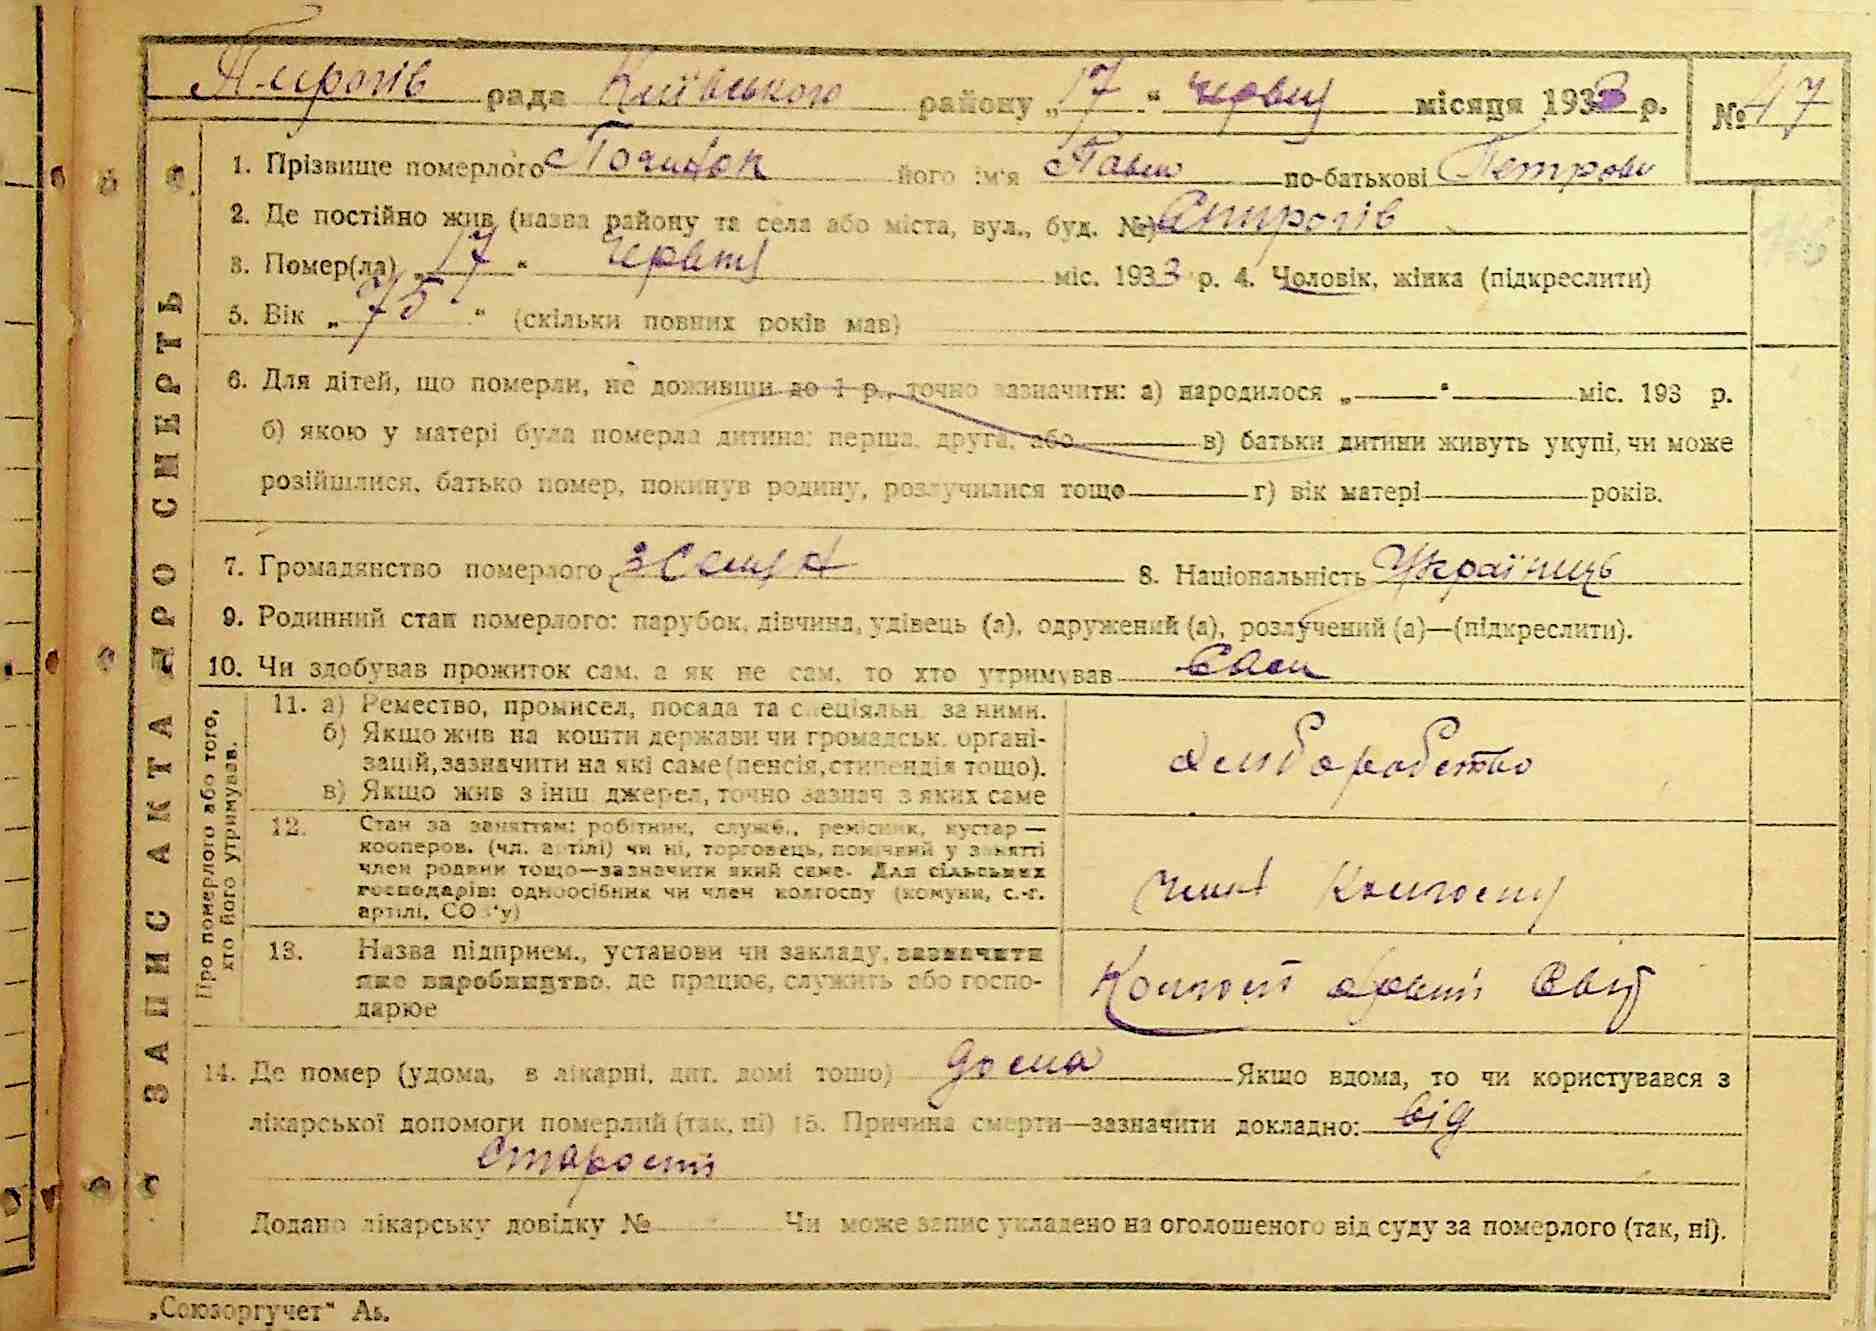 Пирогів рада Київського району „17“ червця місяця 1933 р. № 47
ЗАПИС АКТА ПРО СМЕРТЬ
1. Прізвище померлого його ім'я Павло по-батькові Петрови
2. Де постійно жив (назва району та села або міста, вул., буд. №) Пирогів
3. Помер(ла) „17“ червця міс. 1933 р. 4. Чоловік, жінка (підкреслити)
5. Вік „75“ (скільки повних років мав)
6. Для дітей, що померли, не доживши до 1 р., точно зазначити: а) народилося „ “ міс. 193 р.
б) якою у матері була померла дитина: перша, друга, або в) батьки дитини живуть укупі, чи може
розійшлися, батько помер, покинув родину, розлучилися тощо г) вік матері років.
7. Громадянство померлого 8. Національність Українець
9. Родинний стан померлого: парубок, дівчина, удівець (а), одружений (а), розлучений (а)—(підкреслити).
10. Чи здобував прожиток сам, а як не сам, то хто утримував сам
Про померлого або того,
хто його утримував.
11. а) Ремество, промисел, посада та спеціяльн. за ними.
б) Якщо жив на кошти держави чи громадськ. органі-
зацій, зазначити на які саме (пенсія, стипендія тощо).
в) Якщо жив з інш. джерел, точно зазнач. з яких саме
хліборобство
12. Стан за заняттям: робітник, службов., ремісник, кустар—
кооперов. (чл. артілі) чи ні, торговець, помічний у занятті
член родини тощо—зазначити який саме. Для сільських
господарів: одноосібник чи член колгоспу (комуни, с.-г.
артілі, СОЗ'у)
член колгоспу
13. Назва підприєм., установи чи закладу, зазначити
яке виробництво, де працює, служить або госпо-
дарює
Колгосп Новий Світ
14. Де помер (удома, в лікарні, дит. домі тощо) дома Якщо вдома, то чи користувався з
лікарської допомоги померлий (так, ні) 15. Причина смерти—зазначити докладно: від
старости
Додано лікарську довідку № Чи може запис укладено на оголошеного від суду за померлого (так, ні).
„Союзоргучет“ Ав.